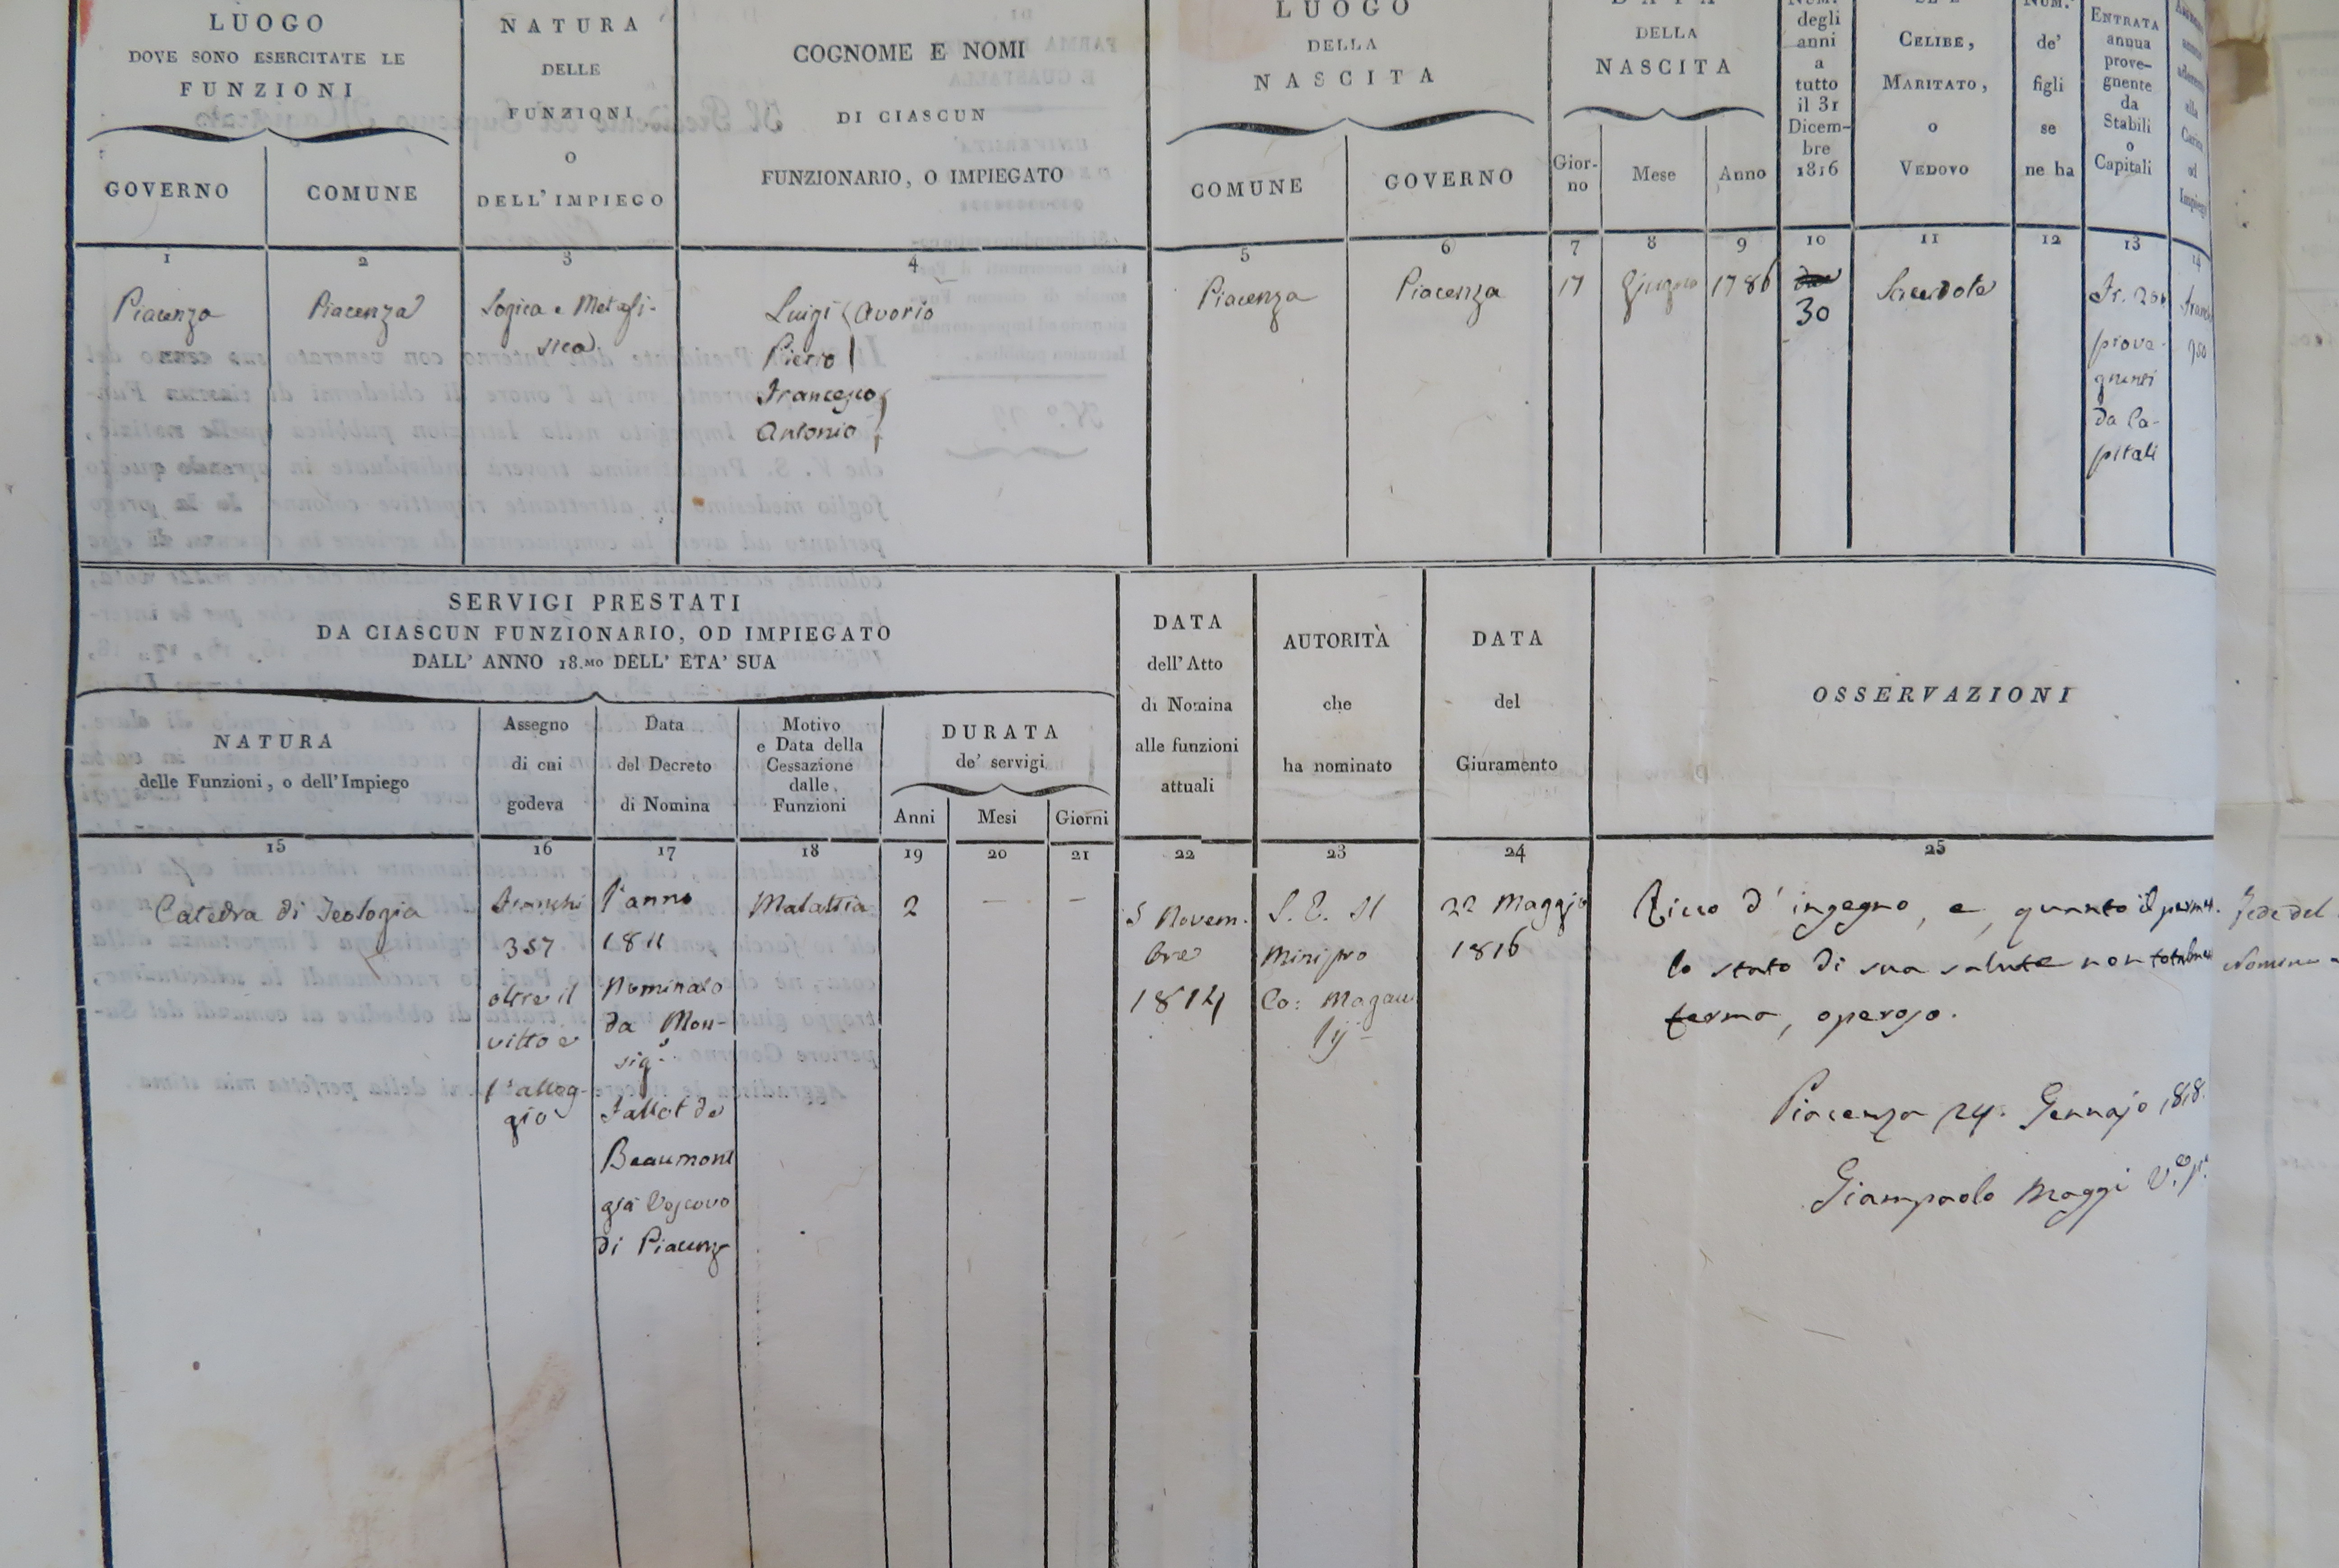 LUOGO
DOVE SONO ESERCITATE LE
FUNZIONI
GOVERNO
COMUNE
NATURA
DELLE
FUNZIONI
O
DELL' IMPIEGO
COGNOME E NOMI
DI CIASCUN
FUNZIONARIO, O IMPIEGATO
LUOGO
DELLA
NASCITA
COMUNE
GOVERNO
DATA
DELLA
NASCITA
Gior-
no
Mese
Anno
NUM.
degli
anni
a
tutto
il 31
Dicem-
bre
1816
SE È
CELIBE,
MARITATO,
o
VEDOVO
NUM.
de'
figli
se
ne ha
ENTRATA
annua
prove-
gnente
da
Stabili
o
Capitali
annuo
alla
Carica
od
Impiego
1 2 3 4 5 6 7 8 9 10 11 12 13 14
Piacenza
Piacenza
Logica e Metafi-
sica
Luigi
Pietro
Francesco
Antonio
Piacenza
Piacenza
17
Giugno
1786
30
Sacerdote
Fr. 200
prove-
gnenti
da Ca-
pitali
SERVIGI PRESTATI
DA CIASCUN FUNZIONARIO, OD IMPIEGATO
DALL' ANNO 18.MO DELL' ETA' SUA
NATURA
delle Funzioni, o dell' Impiego
Assegno
di cui
godeva
Data
del Decreto
di Nomina
Motivo
e Data della
Cessazione
dalle
Funzioni
DURATA
de' servigi
Anni
Mesi
Giorni
DATA
dell' Atto
di Nomina
alle funzioni
attuali
AUTORITÀ
che
ha nominato
DATA
del
Giuramento
OSSERVAZIONI
15 16 17 18 19 20 21 22 23 24 25
Catedra di Teologia
Franchi
357
oltre il
vitto e
l'allog-
gio
l'anno
1811
Nominato
da Mon-
sig.r
Fallot de
Beaumont
già Vescovo
di Piacenza
Malattia
2
—
—
5 Novem-
bre
1814
S. E. Il
Ministro
Co: Magaw-
ly
22 Maggio
1816
Ricco d' ingegno, e, quanto il permet.
lo stato di sua salute non totalmen
ferma, operoso.
Piacenza 24. Gennajo 1818.
Giampaolo Maggi
Fede del